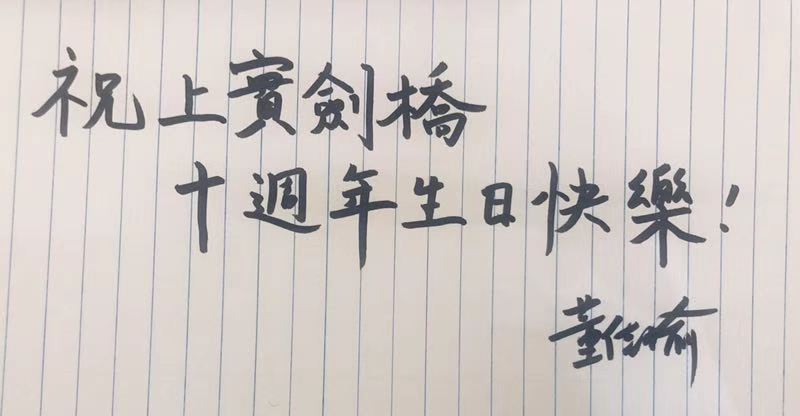 祝上實劍橋
十週年生日快樂!
董